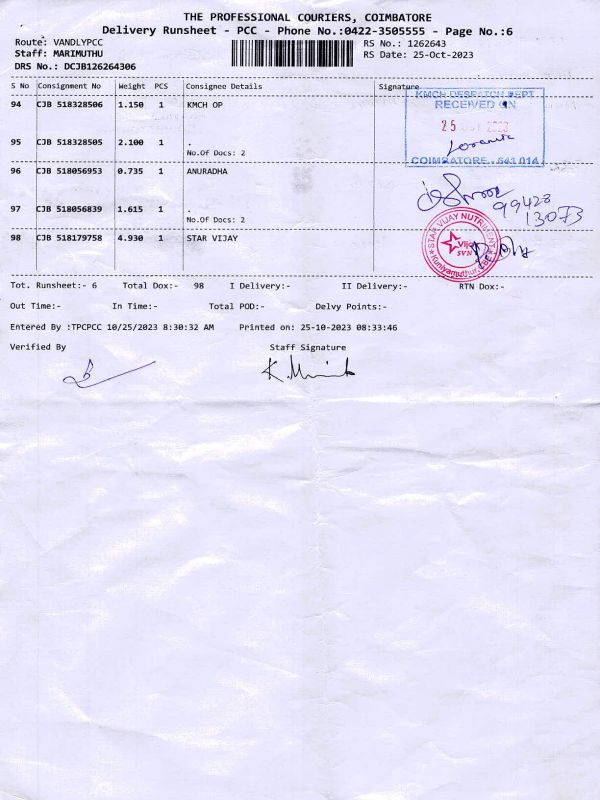 THE PROFESSIONAL COURIERS, COIMBATORE
Delivery Runsheet - PCC - Phone No.:0422-3505555 - Page No.:6
Route: VANDLYPCC RS No.: 1262643
Staff: MARIMUTHU RS Date: 25-Oct-2023
DRS No.: DCJB126264306
S No Consignment No Weight PCS Consignee Details Signature
94 CJB 518328506 1.150 1 KMCH OP
KMCH DESPATCH DEPT
RECEIVED ON
25 OCT 2023
COIMBATORE - 641 014
95 CJB 518328505 2.100 1 .
No.Of Docs: 2
96 CJB 518056953 0.735 1 ANURADHA
99428
13073
97 CJB 518056839 1.615 1 .
No.Of Docs: 2
98 CJB 518179758 4.930 1 STAR VIJAY
STAR VIJAY NUTRIMENT
SVN
Kuniyamuthur, CBE
Tot. Runsheet:- 6 Total Dox:- 98 I Delivery:- II Delivery:- RTN Dox:-
Out Time:- In Time:- Total POD:- Delvy Points:-
Entered By :TPCPCC 10/25/2023 8:30:32 AM Printed on: 25-10-2023 08:33:46
Verified By Staff Signature